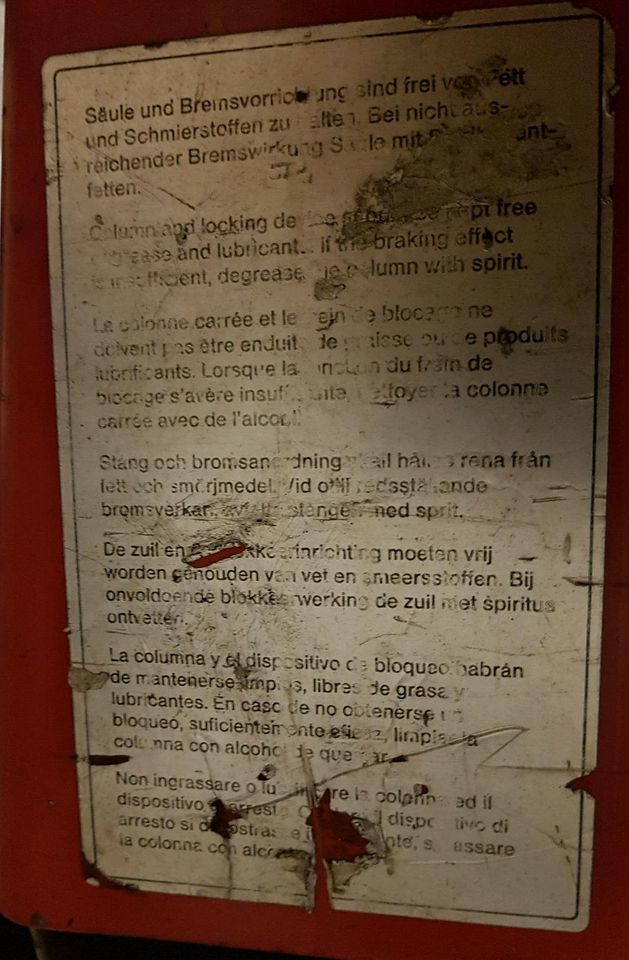 Säule und Bremsvorrichtung sind frei von Fett
und Schmierstoffen zu halten. Bei nicht aus-
reichender Bremswirkung Säule mit ant-
fetten.
Column and locking device kept free
grease and lubricant. If the braking effect
is insufficient, degrease the column with spirit.
La colonne carrée et le frein de blocage ne
doivent pas être enduits de graisse ou de produits
lubrifiants. Lorsque la fonction du frein de
blocage s'avère insuffisante, nettoyer la colonne
carrée avec de l'alcool
Stång och bromsanordning skall hållas rena från
fett och smörjmedel. Vid otillfredsställande
bromsverkan, stången med sprit.
De zuil en blokkeerinrichting moeten vrij
worden gehouden van vet en smeersstoffen. Bij
onvoldoende blokkeerwerking de zuil met spiritus
ontvetten.
La columna y el dispositivo de bloqueo habrán
de mantenerse limpios, libres de grasa y
lubricantes. En caso de no obtenerse un
bloqueo, suficientemente eficaz, limpiar la
columna con alcohol de quemar.
Non ingrassare o lubrificare la colonna ed il
dispositivo arresto dispositivo di
arresto si dimostrasse
la colonna con alcool